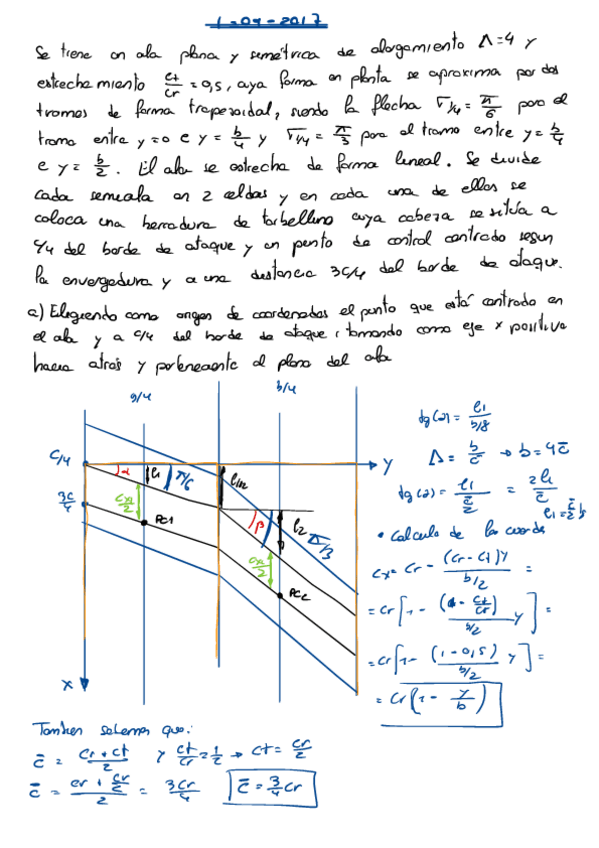 1-07-2017
Se tiene un ala plana y simétrica de alargamiento Λ=4 y
estrechamiento ct/cr = 0,5, cuya forma en planta se aproxima por dos
tramos de forma trapezoidal, siendo la flecha Γ1/4 = π/6 para el
tramo entre y=0 e y = b/4 y Γ1/4 = π/3 para el tramo entre y = b/4
e y = b/2. El ala se estrecha de forma lineal. Se divide
cada semiala en 2 celdas y en cada una de ellas se
coloca una herradura de torbellino cuya cabeza se sitúa a
c/4 del borde de ataque y un punto de control centrado según
la envergadura y a una distancia 3c/4 del borde de ataque.
a) Eligiendo como origen de coordenadas el punto que está centrado en
el ala y a c/4 del borde de ataque, tomando como eje x positivo
hacia atrás y perteneciente al plano del ala
b/4
c/4
y
α
l1
π/6
l1/2
3c/4
cx/2
PC1
β
l2
π/3
cx/2
PC2
x
tg(α) = l1/(b/8)
Λ = b/c̄ → b = 4c̄
tg(α) = l1/(c̄/2) = 2l1/c̄
• Calculo de las cuerdas
cx = cr - (cr - ct)y/(b/2) =
= cr[1 - (1 - ct/cr)/(b/2) y] =
= cr[1 - (1-0,5)/(b/2) y] =
= cr(1 - y/b)
Tambien sabemos que:
c̄ = (cr + ct)/2 y ct/cr = 1/2 → ct = cr/2
c̄ = (cr + cr/2)/2 = 3cr/4 c̄ = 3/4 cr